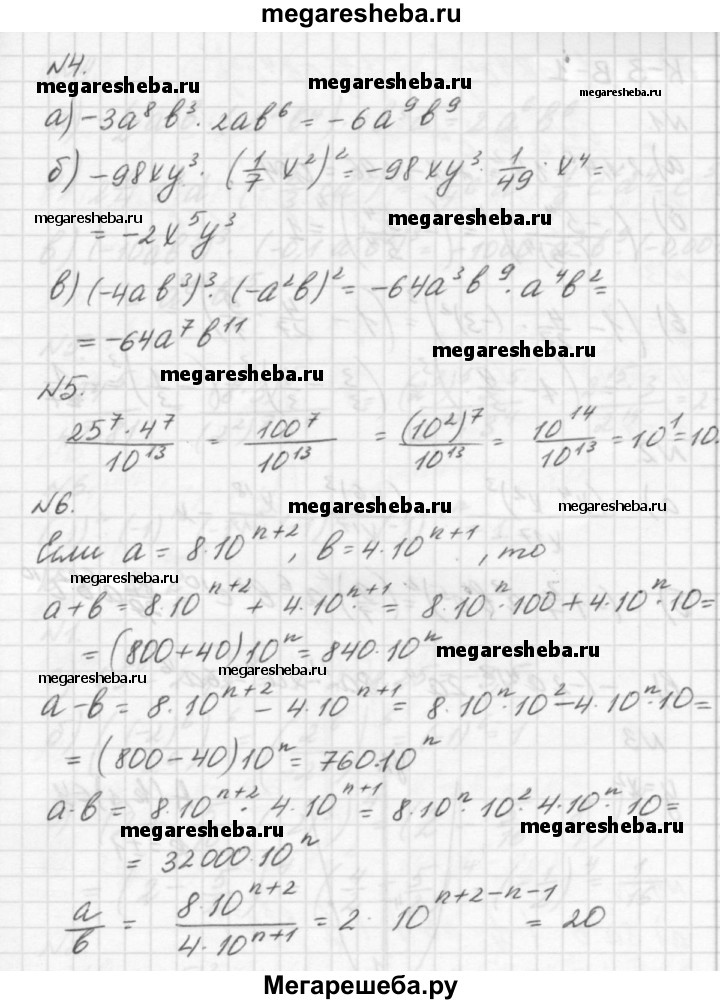 megaresheba.ru
N4.
megaresheba.ru megaresheba.ru
а) -3a⁸b³ · 2ab⁶ = -6a⁹b⁹
б) -98xy³ · (1/7 x²)² = -98xy³ · 1/49 · x⁴ =
megaresheba.ru megaresheba.ru
= -2x⁵y³
в) (-4ab³)³ · (-a²b)² = -64a³b⁹ · a⁴b² =
= -64a⁷b¹¹
megaresheba.ru
megaresheba.ru
N5.
25⁷·4⁷/10¹³ = 100⁷/10¹³ = (10²)⁷/10¹³ = 10¹⁴/10¹³ = 10¹ = 10.
N6.
megaresheba.ru megaresheba.ru
Если a = 8·10ⁿ⁺², b = 4·10ⁿ⁺¹, то
megaresheba.ru
a+b = 8·10ⁿ⁺² + 4·10ⁿ⁺¹ = 8·10ⁿ·100 + 4·10ⁿ·10 =
= (800+40)10ⁿ = 840·10ⁿ
megaresheba.ru
megaresheba.ru megaresheba.ru
a-b = 8·10ⁿ⁺² - 4·10ⁿ⁺¹ = 8·10ⁿ·10² - 4·10ⁿ·10 =
= (800-40)10ⁿ = 760·10ⁿ
a·b = 8·10ⁿ⁺² · 4·10ⁿ⁺¹ = 8·10ⁿ·10²·4·10ⁿ·10 =
megaresheba.ru megaresheba.ru
= 32000·10ⁿ
a/b = 8·10ⁿ⁺²/4·10ⁿ⁺¹ = 2·10ⁿ⁺²⁻ⁿ⁻¹ = 20
Мегарешеба.ру